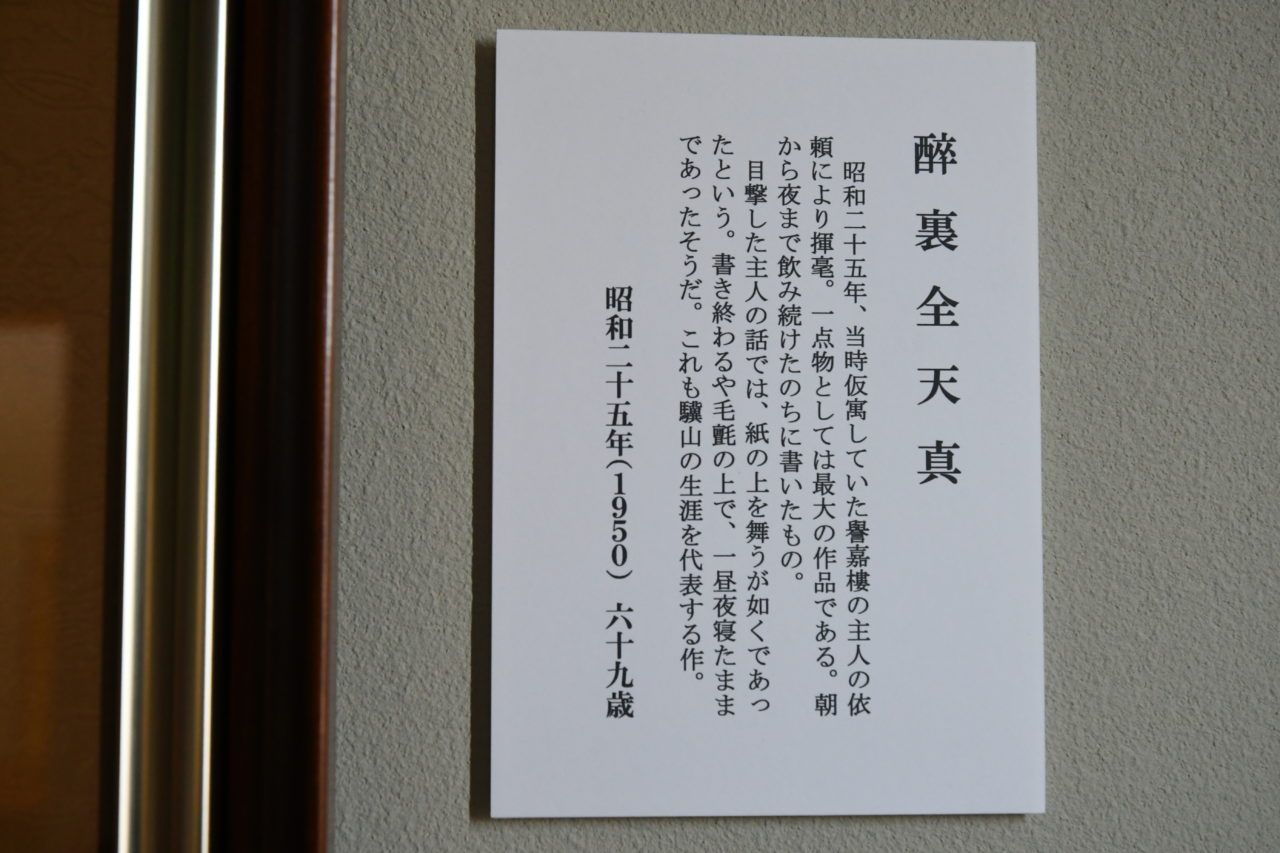 醉裏全天真
昭和二十五年、当時仮寓していた譽嘉樓の主人の依
頼により揮毫。一点物としては最大の作品である。朝
から夜まで飲み続けたのちに書いたもの。
目撃した主人の話では、紙の上を舞うが如くであっ
たという。書き終わるや毛氈の上で、一昼夜寝たまま
であったそうだ。これも驥山の生涯を代表する作。
昭和二十五年(1950) 六十九歳